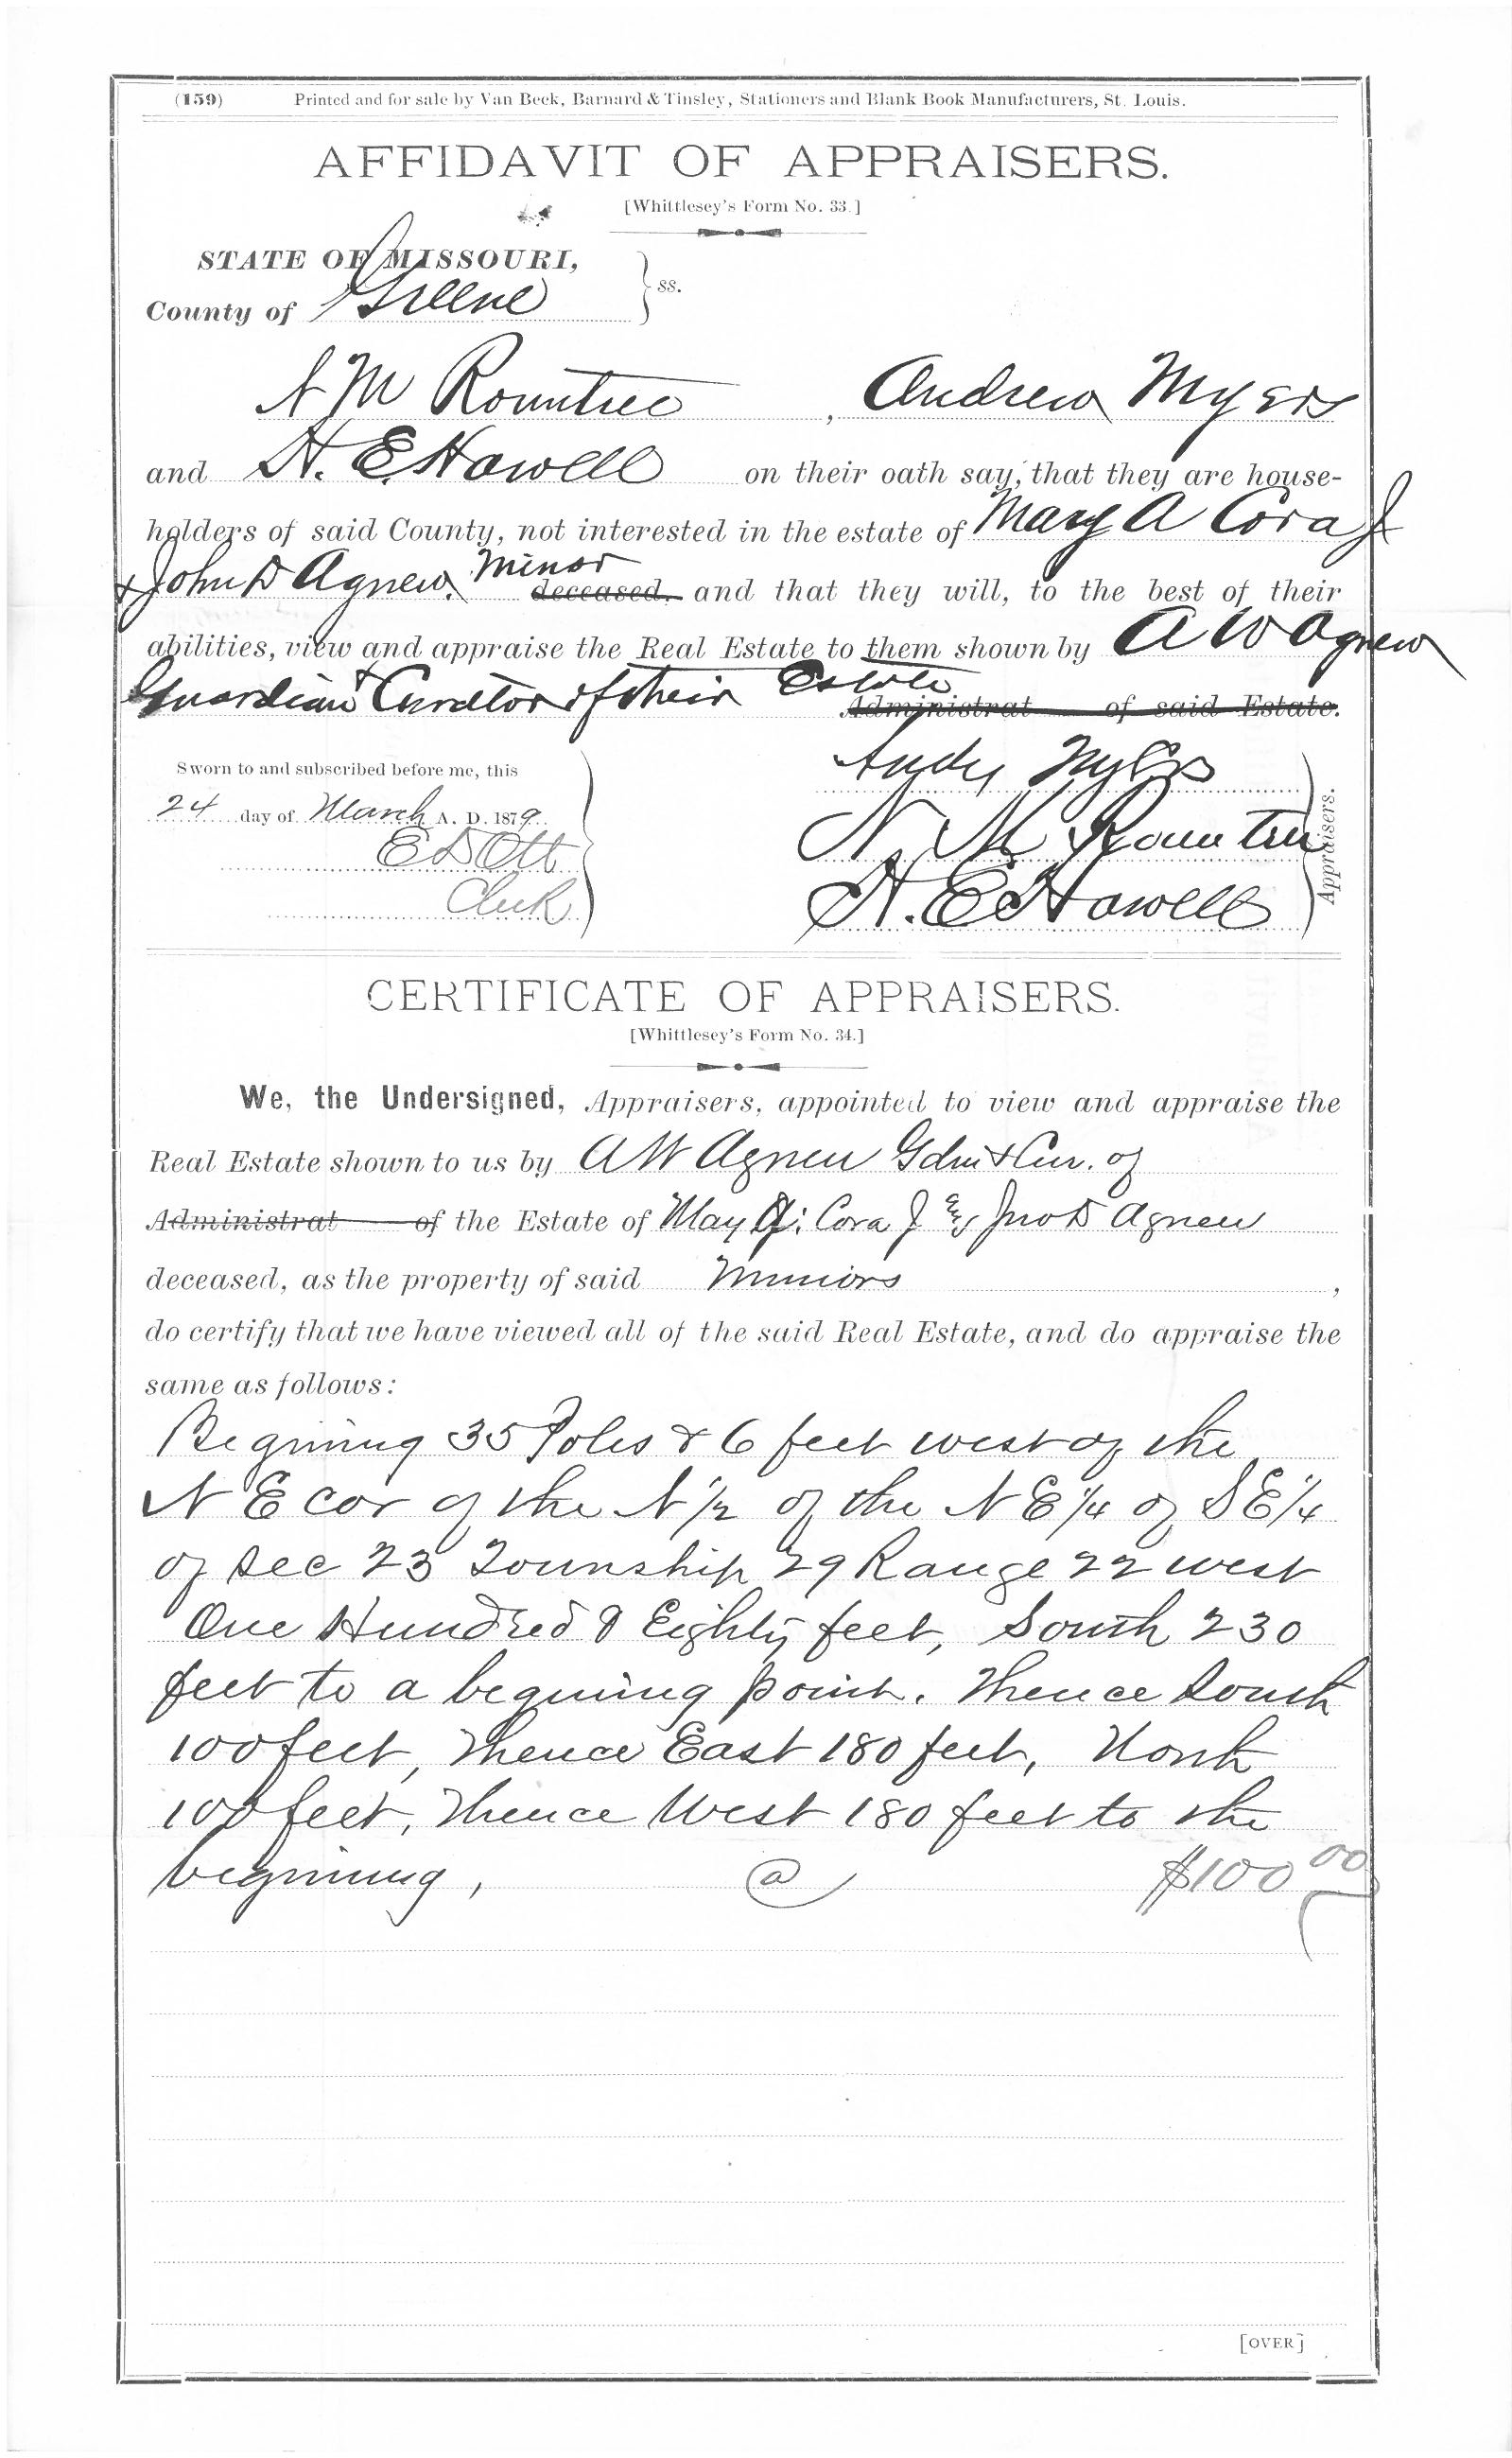 (159) Printed and for sale by Van Beek, Barnard & Tinsley, Stationers and Blank Book Manufacturers, St. Louis.
AFFIDAVIT OF APPRAISERS.
[Whittlesey's Form No. 33.]
STATE OF MISSOURI,
County of Greene } ss.
N M Rountree, Andrew Myers
and H. E Howell on their oath say, that they are house-
holders of said County, not interested in the estate of Mary A Cora J
& John D Agnew. Minor deceased, and that they will, to the best of their
abilities, view and appraise the Real Estate to them shown by A W Agnew
Guardian & Curator of their Estate Administrat of said Estate.
Sworn to and subscribed before me, this
24 day of March A. D. 1879.
E D Ott
Clerk
Andy Myers
N M Rountree
H. E Howell
Appraisers.
CERTIFICATE OF APPRAISERS.
[Whittlesey's Form No. 34.]
We, the Undersigned, Appraisers, appointed to view and appraise the
Real Estate shown to us by A W Agnew Gdn & Cur. of
Administrat of the Estate of May A; Cora J & Jno D Agnew
deceased, as the property of said Minors,
do certify that we have viewed all of the said Real Estate, and do appraise the
same as follows:
Begining 35 Poles & 6 feet west of the
N E cor of the N 1/2 of the N E 1/4 of S E 1/4
of Sec 23 Township 29 Range 22 west
One Hundred & Eighty feet, South 230
feet to a begining point. Thence South
100 feet, Thence East 180 feet, North
100 feet, Thence West 180 feet to the
begining, @ $100 00
[OVER]